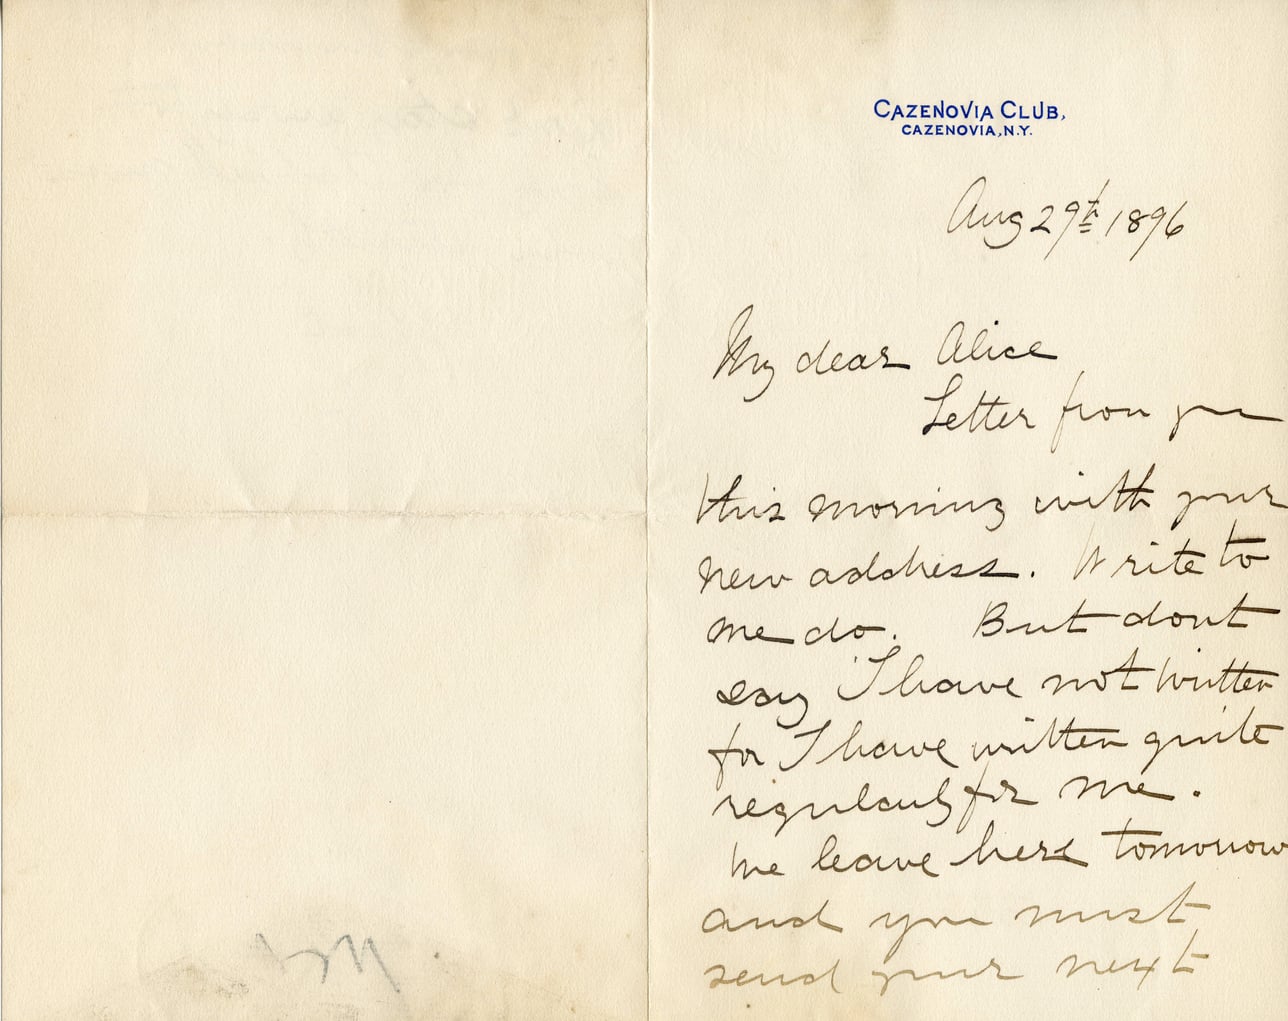 CAZENOVIA CLUB,
CAZENOVIA, N.Y.
Aug 29th 1896
My dear Alice
Letter from you
this morning with your
new address. Write to
me do. But dont
say I have not written
for I have written quite
regularly for me.
We leave here tomorrow
and you must
send your next